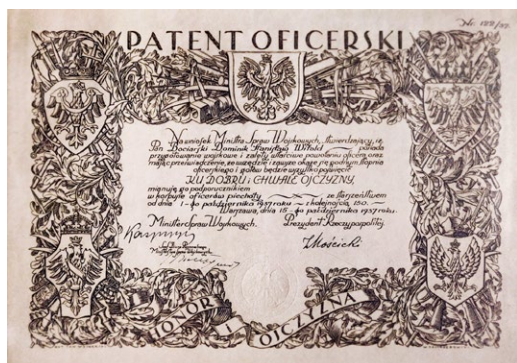 Nr. 122/37
PATENT OFICERSKI
Na wniosek Ministra Spraw Wojskowych, stwierdzający, że
Pan Bociarski Dominik Stanisław Witold posiada
przygotowanie wojskowe i zalety właściwe powołaniu oficera oraz
mając przeświadczenie, że wszędzie i zawsze okaże się godnym stopnia
oficerskiego i gotów będzie wszystko poświęcić
KU DOBRU i CHWALE OJCZYZNY,
mianuję go podporucznikiem
w korpusie oficerów piechoty ze starszeństwem
od dnia 1-go października 1937 roku i kolejnością 150.
Warszawa, dnia 15-go października 1937 roku.
Minister Spraw Wojskowych. Prezydent Rzeczypospolitej.
I Mościcki
HONOR I OJCZYZNA